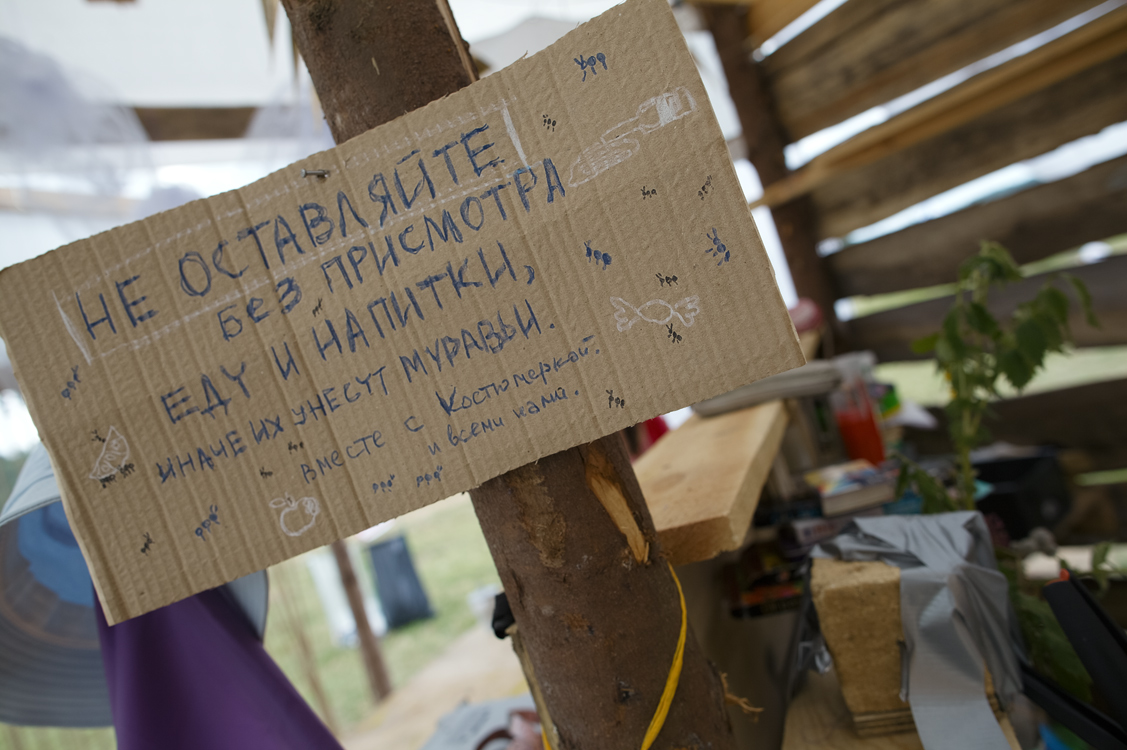 НЕ ОСТАВЛЯЙТЕ
без ПРИСМОТРА
ЕДУ И НАПИТКИ,
ИНАЧЕ ИХ УНЕСУТ МУРАВЬИ.
вместе с Костюмеркой.
и всеми нами.